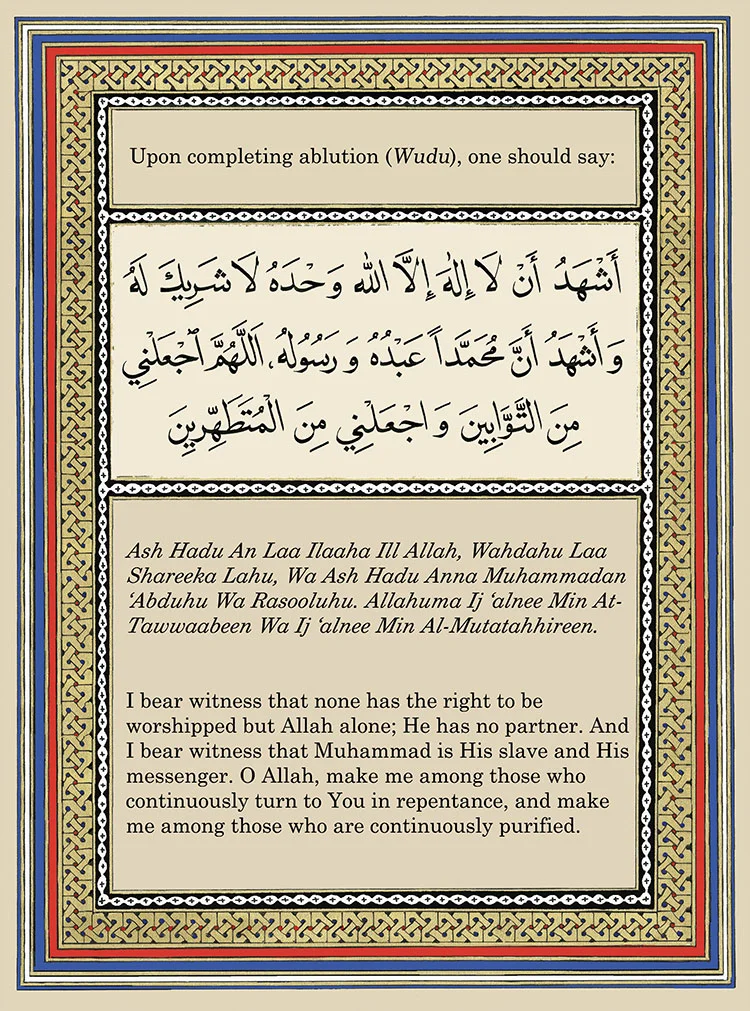 Upon completing ablution (Wudu), one should say:
أَشْهَدُ أَنْ لَا إِلٰهَ إِلَّا اللّٰه وَحْدَهُ لَا شَرِيكَ لَهُ
وَ أَشْهَدُ أَنَّ مُحَمَّداً عَبْدُهُ وَ رَسُولُهُ، اَللَّهُمَّ ٱجْعَلْنِي
مِنَ التَّوَّابِينَ وَ اجْعَلْنِي مِنَ الْمُتَطَهِّرِينَ
Ash Hadu An Laa Ilaaha Ill Allah, Wahdahu Laa
Shareeka Lahu, Wa Ash Hadu Anna Muhammadan
‘Abduhu Wa Rasooluhu. Allahuma Ij ‘alnee Min At-
Tawwaabeen Wa Ij ‘alnee Min Al-Mutatahhireen.
I bear witness that none has the right to be
worshipped but Allah alone; He has no partner. And
I bear witness that Muhammad is His slave and His
messenger. O Allah, make me among those who
continuously turn to You in repentance, and make
me among those who are continuously purified.